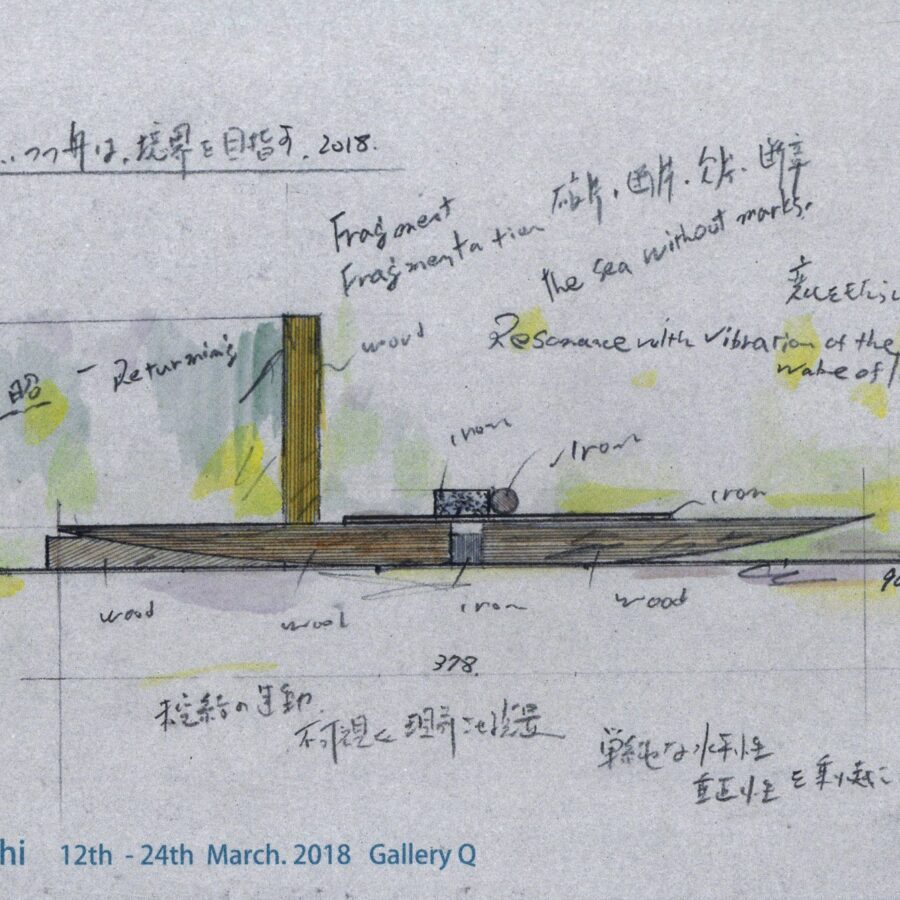 舟は、境界を目指す. 2018.
Fragment
Fragmentation
破片、断片、欠片、断章
the sea without marks.
Resonance with vibration of the
wake of
Returning
wood
iron
iron
iron
wood
wood
iron
wood
378.
未完結の運動
不可視と現前
単純な水平性
垂直性を乗り越
hi 12th - 24th March. 2018 Gallery Q